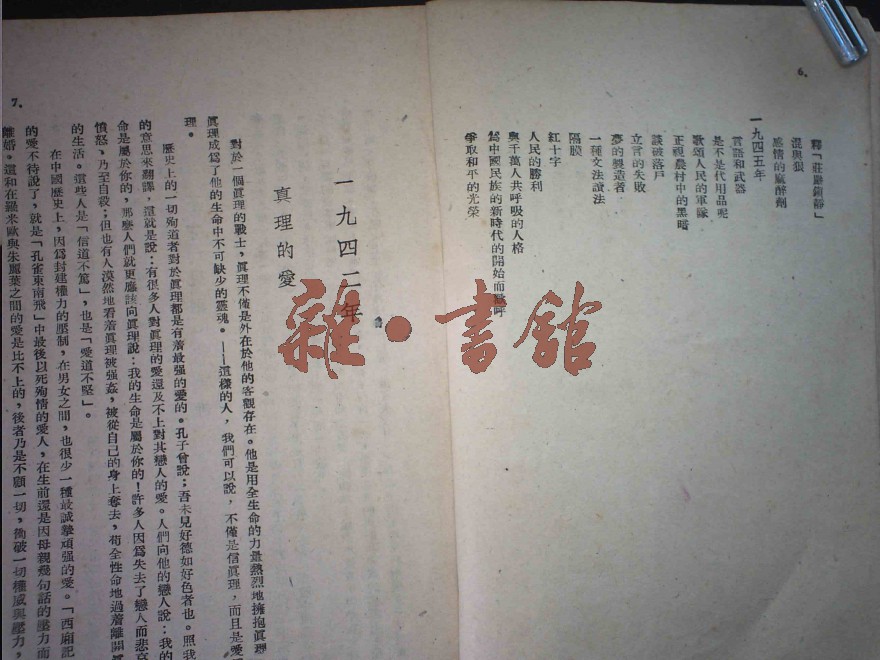 6.
釋「莊嚴鎮靜」
混與狠
感情的麻醉劑
一九四五年
言語和武器
是不是代用品呢
歌頌人民的軍隊
正視農村中的黑暗
談破落戶
立言的失敗
夢的製造者
一種文法讀法
隔膜
紅十字
人民的勝利
與千萬人共呼吸的人格
爲中國民族的新時代的開始而歡呼
爭取和平的光榮
7.
一九四二年
真理的愛
對於一個眞理的戰士，眞理不僅是外在於他的客觀存在。他是用全生命的力量熱烈地擁抱眞理
眞理成爲了他的生命中不可缺少的靈魂。——這樣的人，我們可以說，不僅是信眞理，而且是愛
理。
歷史上的一切殉道者對於眞理都是有着最强的愛的。孔子曾說；吾未見好德如好色者也。照我
的意思來翻譯，這就是說：有很多人對眞理的愛還及不上對其戀人的愛。人們向他的戀人說：我的
命是屬於你的，那麼人們就更應該向眞理說：我的生命是屬於你的！許多人因爲失去了戀人而悲哀
憤怒、乃至自殺；但也有人漠然地看着眞理被强姦，被從自己的身上奪去，苟全性命地過着離開
的生活。這些人是「信道不篤」，也是「愛道不堅」。
在中國歷史上，因爲封建權力的壓制，在男女之間，也很少一種最誠摯頑强的愛。「西廂記
的愛不待說了，就是「孔雀東南飛」中最後以死殉情的愛人，在生前還是因母親幾句話的壓力而
離婚。這和在羅米歐與朱麗葉之間的愛是比不上的，後者乃是不顧一切，衝破一切權威與壓力，
雜·書館